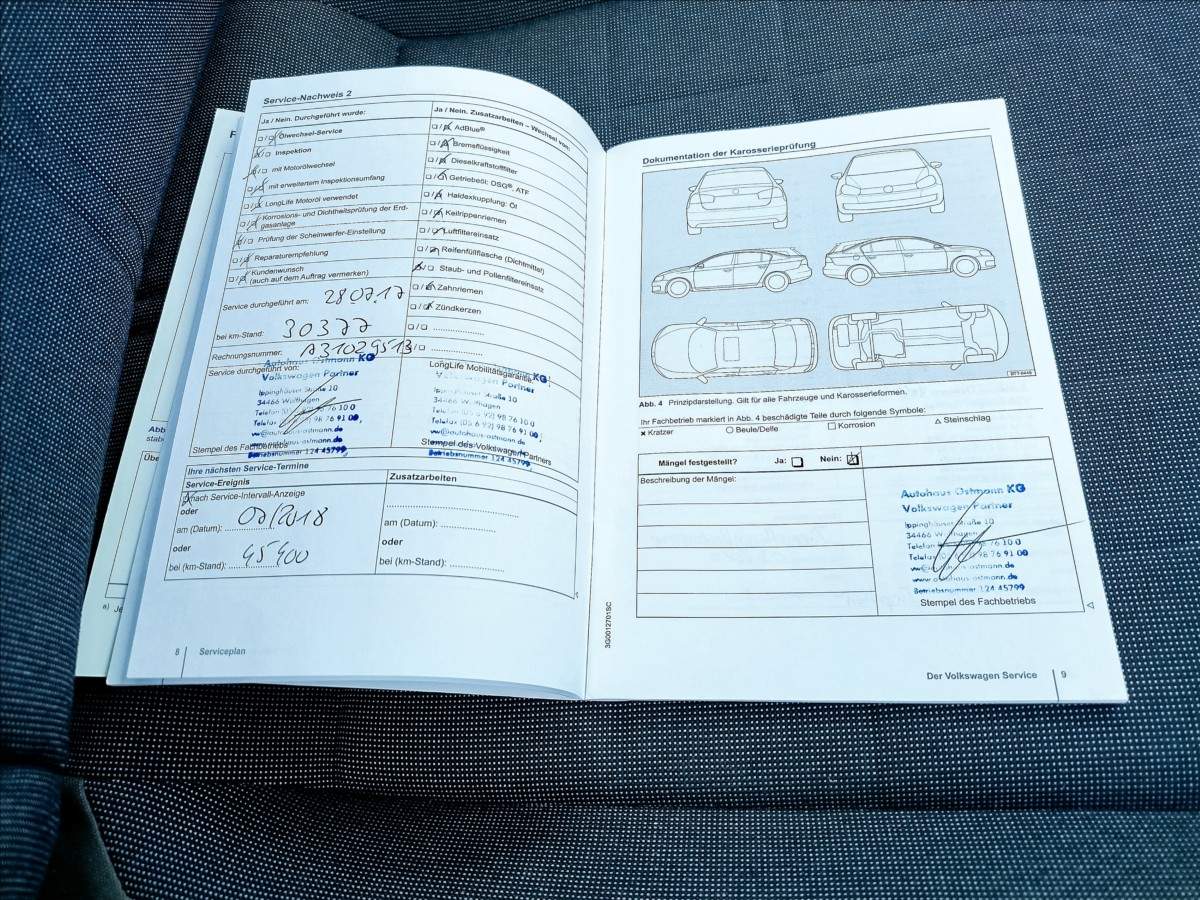 Service-Nachweis 2
Ja / Nein. Durchgeführt wurde:
□/□ Ölwechsel-Service
□/□ Inspektion
□/□ mit Motorölwechsel
□/□ mit erweitertem Inspektionsumfang
□/□ LongLife Motoröl verwendet
□/□ Korrosions- und Dichtheitsprüfung der Erd-
gasanlage
□/□ Prüfung der Scheinwerfer-Einstellung
□/□ Reparaturempfehlung
□/□ Kundenwunsch
(auch auf dem Auftrag vermerken)
Service durchgeführt am: 28.07.17
bei km-Stand: 30377
Rechnungsnummer: A31029513
Service durchgeführt von:
Autohaus Ostmann KG
Volkswagen Partner
Ippinghäuser Straße 10
34466 Wolfhagen
Telefon 76 10 0
Telefax 98 76 91 00
vw@autohaus-ostmann.de
www.autohaus-ostmann.de
Betriebsnummer 124 45799
Stempel des Fachbetriebs
Ja / Nein. Zusatzarbeiten – Wechsel von:
□/□ AdBlue®
□/□ Bremsflüssigkeit
□/□ Dieselkraftstofffilter
□/□ Getriebeöl: DSG®, ATF
□/□ Haldexkupplung: Öl
□/□ Keilrippenriemen
□/□ Luftfiltereinsatz
□/□ Reifenfüllflasche (Dichtmittel)
□/□ Staub- und Pollenfiltereinsatz
□/□ Zahnriemen
□/□ Zündkerzen
□/□ ....................
□/□ ....................
LongLife Mobilitätsgarantie
Autohaus Ostmann KG
Volkswagen Partner
Ippinghäuser Straße 10
34466 Wolfhagen
Telefon (0 56 92) 98 76 10 0
Telefax (0 56 92) 98 76 91 00
vw@autohaus-ostmann.de
www.autohaus-ostmann.de
Betriebsnummer 124 45799
Stempel des Volkswagen Partners
Ihre nächsten Service-Termine
Service-Ereignis
□ nach Service-Intervall-Anzeige
oder
am (Datum): 07/2018
oder
bei (km-Stand): 45400
Zusatzarbeiten
am (Datum): ....................
oder
bei (km-Stand): ....................
8 Serviceplan
Dokumentation der Karosserieprüfung
Abb. 4 Prinzipdarstellung. Gilt für alle Fahrzeuge und Karosserieformen.
Ihr Fachbetrieb markiert in Abb. 4 beschädigte Teile durch folgende Symbole:
× Kratzer ○ Beule/Delle □ Korrosion △ Steinschlag
Mängel festgestellt? Ja: □ Nein: ☒
Beschreibung der Mängel:
Autohaus Ostmann KG
Volkswagen Partner
Ippinghäuser Straße 10
34466 Wolfhagen
Telefon 76 10 0
Telefax 98 76 91 00
vw@autohaus-ostmann.de
www.autohaus-ostmann.de
Betriebsnummer 124 45799
Stempel des Fachbetriebs
3G0012701SC
Der Volkswagen Service 9